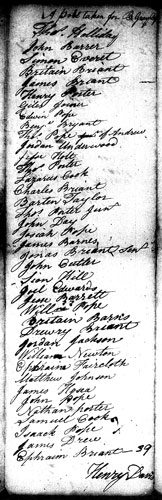 A Poll taken for B Grayes
Thos. Holliday
John Barrer
Simon Everet
Britain Briant
James Briant
Henry Porter
Giles Joiner
Edwin Pope
Benj. Briant
Thos. Pope of Andrew
Jordan Underwood
Holly
Thos Porter
Lazarus Cook
Charles Briant
Barton Taylor
Thos Porter Junr
John Day
Josiah Pope
James Barnes
Jonas Briant Senr
John Butler
Sion Hill
Joel Edwards
Jesse Barrett
Willm Pope
Britain Barns
Drewry Briant
Jordan Jackson
William Newton
Ephraim Faircloth
Matthew Johnson
James
John Pope
Nathan Porter
Samuel Cook
Isaack Pope
James Drew
Ephraim Briant 39
Henry